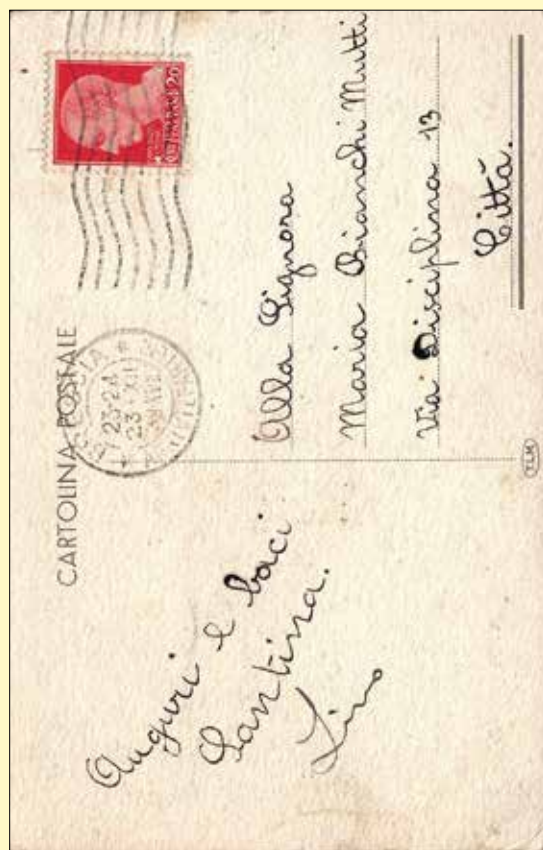 CARTOLINA POSTALE
BRESCIA
23-24
23 XII
Auguri e baci
Santina.
Lino
Alla Signora
Maria Bianchi Mutti
Via Disciplina 13
Città.